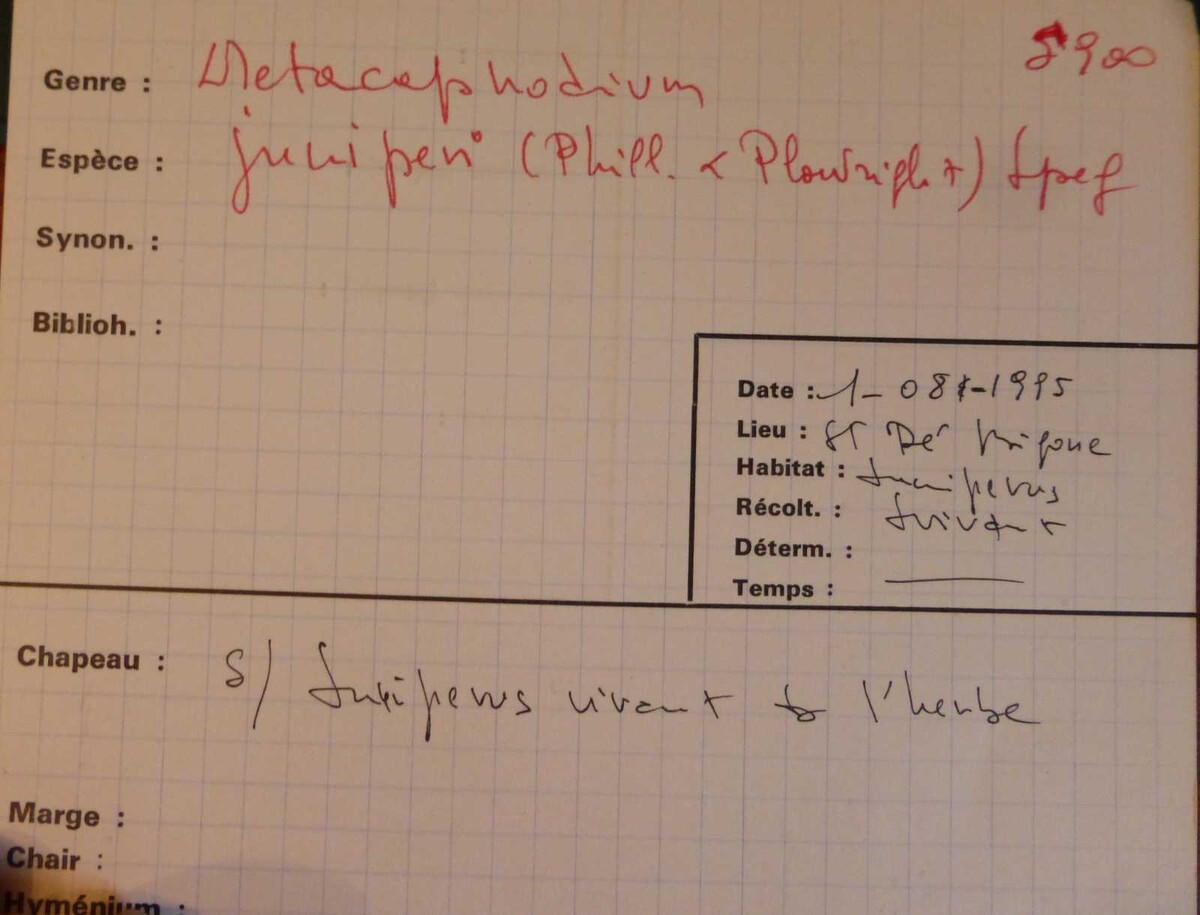 5900
Genre : Metacaphnodium
Espèce : juniperi (Phill. & Plowright) Speg
Synon. :
Biblioh. :
Date : 1-08-1995
Lieu : ST
Habitat : Juniperus
Récolt. : vivant
Déterm. :
Temps : —
Chapeau : S/ Juniperus vivant l'herbe
Marge :
Chair :
Hyménium :